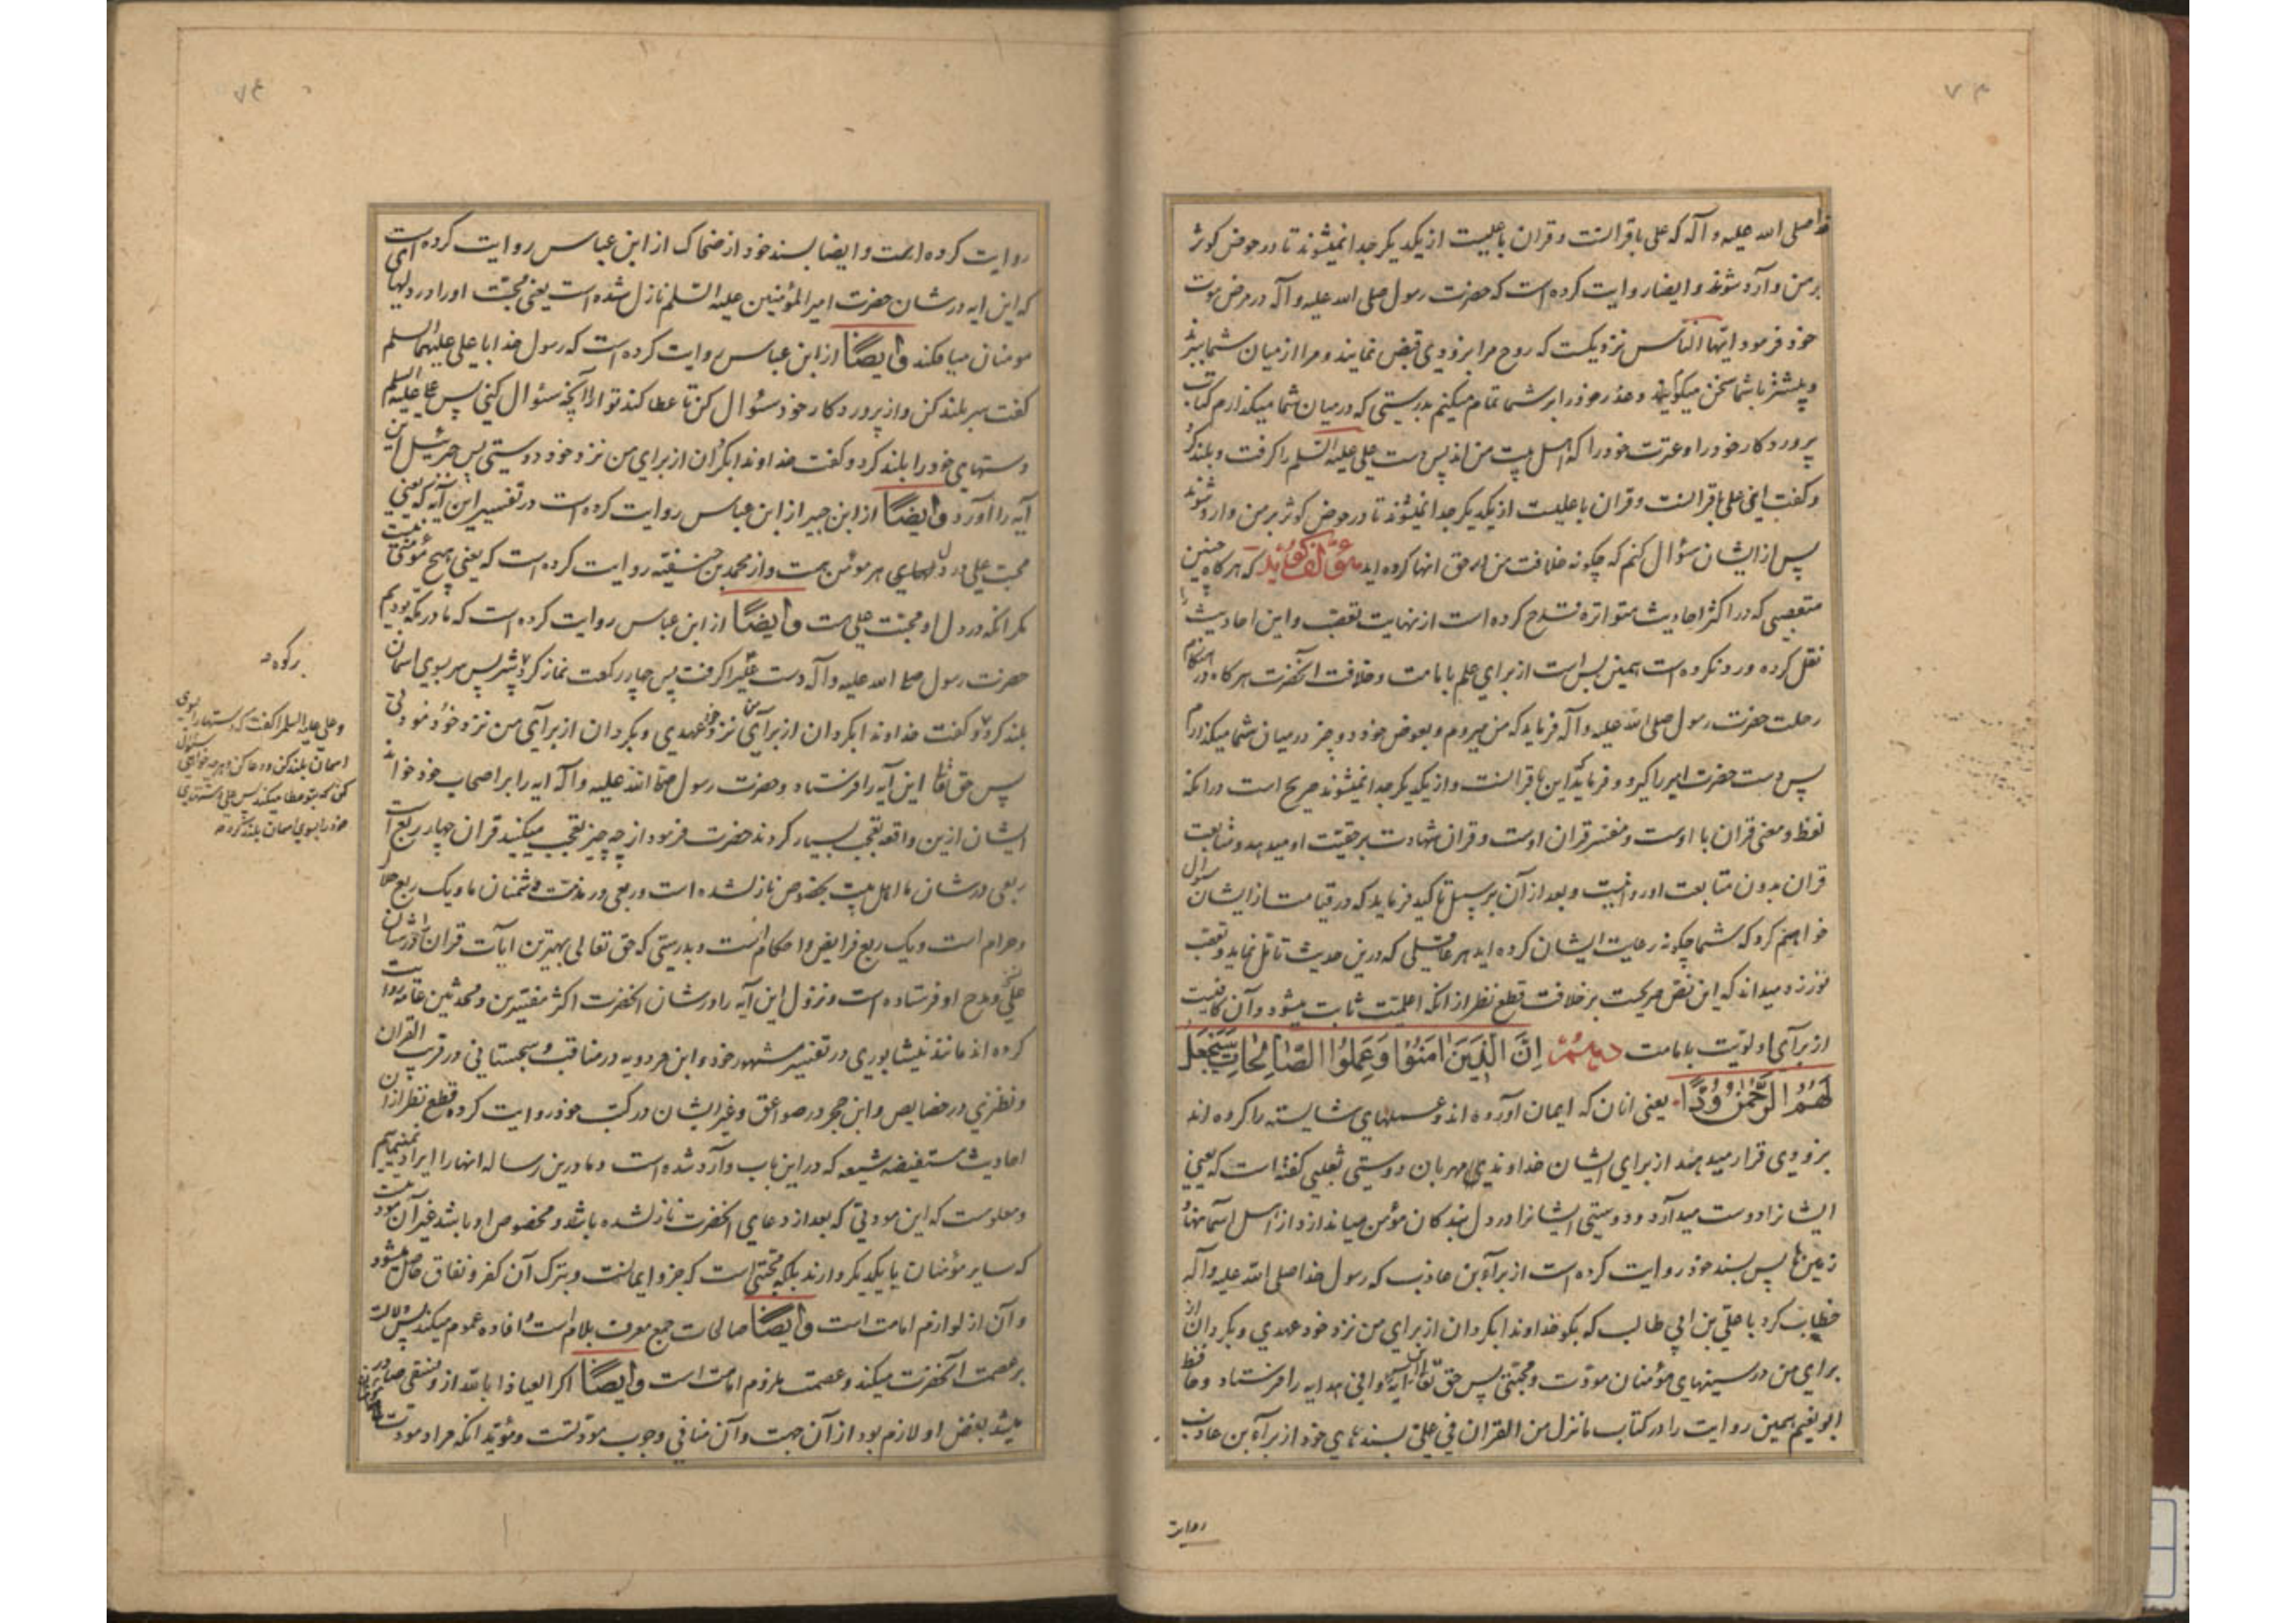 ۷۳
خدا صلی الله علیه و آله که علی با قرانست و قران با علیست از یکدیگر جدا نمیشوند تا در حوض کوثر
بر من وارد شوند و ایضا روایت کرده است که حضرت رسول صلی الله علیه و آله در مرض موت
خود فرمود ایها الناس نزدیکست که روح مرا بزودی قبض نمایند و مرا از میان شما ببرند
و پیشتر با شما سخن میگویم و عذر خود را بر شما تمام میکنم بدرستی که در میان شما میگذارم کتاب
پروردکار خود را و عترت خود را که اهل بیت من اند پس دست علی علیه السلم را کرفت و بلند کرد
و کفت این علی با قرانست و قران با علیست از یکدیگر جدا نمیشوند تا در حوض کوثر بر من وارد شوند
پس از ایشان سؤال کنم که چکونه خلافت من در حق انها کرده اید که هرکاه چنین
متعصبی که در اکثر احادیث متواتره قدح کرده است از نهایت تعصب و این احادیث را
نقل کرده و رد نکرده است همین بس است از برای علم بامامت و خلافت آنحضرت هرکاه در هنکام
رحلت حضرت رسول صلی الله علیه و آله فرماید که من میروم و بعوض خود دو چیز در میان شما میکذارم
پس دست حضرت امیر را کیرد و فرماید که این با قرانست و از یکدیکر جدا نمیشوند صریح است در انکه
لفظ و معنی قران با اوست و مفسر قران اوست و قران شهادت بر حقیت او میدهد و متابعت
قران بدون متابعت او روا نیست و بعد از آن بر سبیل تاکید فرماید که در قیامت از ایشان سؤال
خواهم کرد که شما چکونه رعایت ایشان کرده اید هر عاقلی که درین حدیث تامل نماید و تعصب
نورزد میداند که این نص صریحست بر خلافت قطع نظر از انکه اعلمیت ثابت میشود و آن کافیست
از برای اولویت بامامت دهم اِنَّ الَّذِینَ اٰمَنُوا وَعَمِلُوا الصَّالِحَاتِ سَیَجْعَلُ
لَهُمُ الرَّحْمٰنُ وُدًّا یعنی انان که ایمان آورده اند و عملهای شایسته را کرده اند
بزودی قرار میدهد از برای ایشان خداوند مهربان دوستی ثعلبی کفته است که یعنی
ایشانرا دوست میدارد و دوستی ایشانرا در دل بندکان مؤمن میاندازد از اهل آسمانها و
زمین ها پس بسند خود روایت کرده است از براء بن عاذب که رسول خدا صلی الله علیه و آله
خطاب کرد با علی بن ابی طالب که بکو خداوندا بکردان از برای من نزد خود عهدی و بکردان از
برای من در سینهای مؤمنان مودت و محبتی پس حق تعالی این آیه وافی هدایه را فرستاد و حافظ
ابو نعیم همین روایت را در کتاب ما نزل من القران فی علی بسندهای خود از براء بن عاذب
روایت
روایت کرده است و ایضا بسند خود از ضحاک از ابن عباس روایت کرده است
که این ایه در شان حضرت امیر المؤمنین علیه السلم نازل شده است یعنی محبت او را در دلهای
مومنان میافکند و ایضًا از ابن عباس روایت کرده است که رسول خدا با علی علیهما السلم
کفت سر بلند کن و از پروردکار خود سئوال کن تا عطا کند تو را آنچه سئوال کنی پس علی علیه السلم
دستهای خود را بلند کرد و کفت خداوندا بکردان از برای من نزد خود دوستی پس جبرئیل این
آیه را آورد و ایضًا از ابن جبیر از ابن عباس روایت کرده است در تفسیر این آیه که یعنی
محبت علی در دلهای هر مؤمن هست و از محمد بن حنفیه روایت کرده است که یعنی هیچ مؤمنی نیست
مکر انکه در دل او محبت علی هست و ایضًا از ابن عباس روایت کرده است که ما در مکه بودیم
حضرت رسول صلی الله علیه و آله دست علی را کرفت پس چهار رکعت نماز کرد پس سر بسوی اسمان
بلند کرد و کفت خداوندا بکردان از برای من نزد خود عهدی و بکردان از برای من نزد خود مودتی
پس حق تعالی این آیه را فرستاد و حضرت رسول صلی الله علیه و اله ایه را بر اصحاب خود خواند
ایشان ازین واقعه تعجب بسیار کردند حضرت فرمود از چه چیز تعجب میکنید قران چهار ربع است
ربعی در شان ما اهل بیت بخصوص نازل شده است و ربعی در مذمت دشمنان ما و یک ربع حلال
و حرام است و یک ربع فرایض و احکام است و بدرستی که حق تعالی بهترین ایات قران را در شان
علی و مدح او فرستاده است و نزول این آیه را در شان انحضرت اکثر مفسرین و محدثین عامه روایت
کرده اند مانند نیشابوری در تفسیر مشهور خود و ابن مردویه در مناقب و سجستانی در غریب القران
و نطنزی در خصایص و ابن حجر در صواعق و غیر ایشان در کتب خود روایت کرده قطع نظر از ان
احادیث مستفیضه شیعه که در این باب وارد شده است و ما درین رساله انها را ایراد نمینمایم
و معلومست که این مودتی که بعد از دعای انحضرت نازل شده باشد و مخصوص او باشد غیر آن مودت است
که سایر مؤمنان با یکدیکر دارند بلکه محبتی است که جزو ایمانست و بترک آن کفر و نفاق حاصل میشود
و آن از لوازم امامت است و ایضًا صالحات جمع معرف بلام است و افاده عموم میکند پس دلالت
بر عصمت آنحضرت میکند و عصمت ملزوم امامت است و ایضًا اکر العیاذا بالله از و فسقی صادر
میشد بغض او لازم بود از آن جهت و آن منافی وجوب مودتست و مؤید انکه مراد مودت
و علی علیه السلم را کفت که دستها را بسوی
اسمان بلند کن و دعا کن و هر چه خواهی سئوال
کن که بتو عطا میکند پس علی دستهای
خود را بسوی اسمان بلند کرد